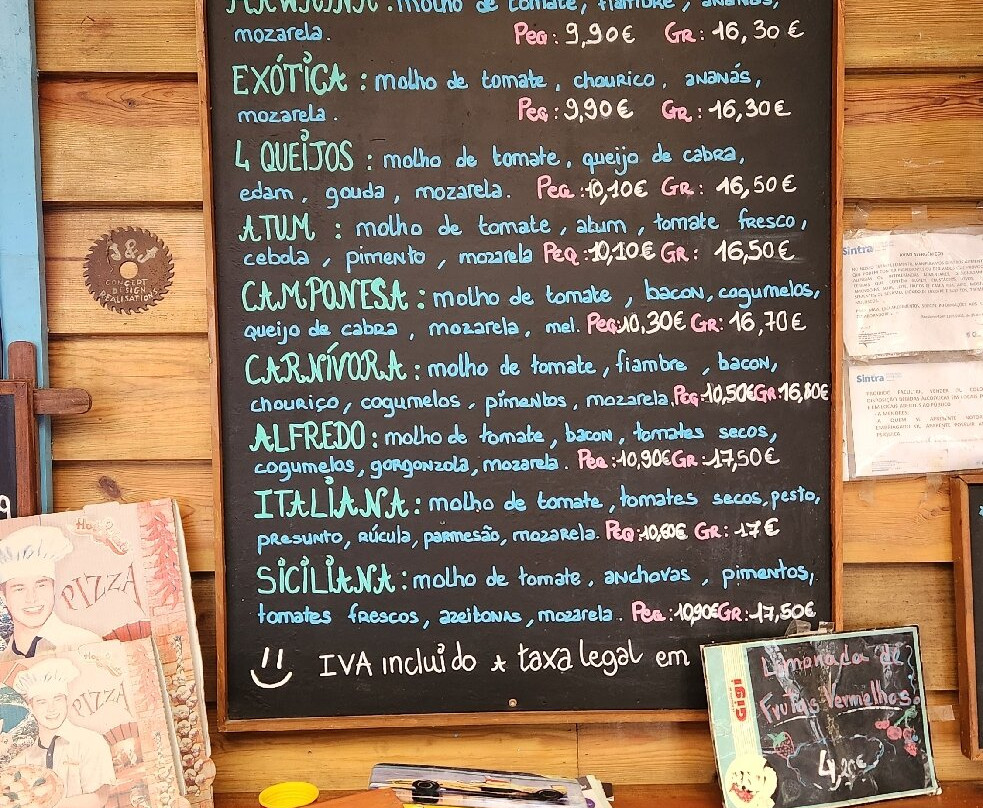 molho de tomate, fiambre, ananás,
mozarela. Peq: 9,90€ Gr: 16,30€
EXÓTICA: molho de tomate, chourico, ananás,
mozarela. Peq: 9,90€ Gr: 16,30€
4 QUEIJOS: molho de tomate, queijo de cabra,
edam, gouda, mozarela. Peq: 10,10€ Gr: 16,50€
ATUM: molho de tomate, atum, tomate fresco,
cebola, pimento, mozarela Peq: 10,10€ Gr: 16,50€
CAMPONESA: molho de tomate, bacon, cogumelos,
queijo de cabra, mozarela, mel. Peq: 10,30€ Gr: 16,70€
CARNÍVORA: molho de tomate, fiambre, bacon,
chouriço, cogumelos, pimentos, mozarela. Peq: 10,50€ Gr: 16,80€
ALFREDO: molho de tomate, bacon, tomates secos,
cogumelos, gorgonzola, mozarela. Peq: 10,90€ Gr: 17,50€
ITALIANA: molho de tomate, tomates secos, pesto,
presunto, rúcula, parmesão, mozarela. Peq: 10,80€ Gr: 17€
SICILIANA: molho de tomate, anchovas, pimentos,
tomates frescos, azeitonas, mozarela. Peq: 10,90€ Gr: 17,50€
IVA incluido à taxa legal em
J&J
CONCEPT
DESIGN
REALISATION
PIZZA
PIZZA
Sintra
Sintra
Gigi
Limonada de
Frutas Vermelhos
4,20€